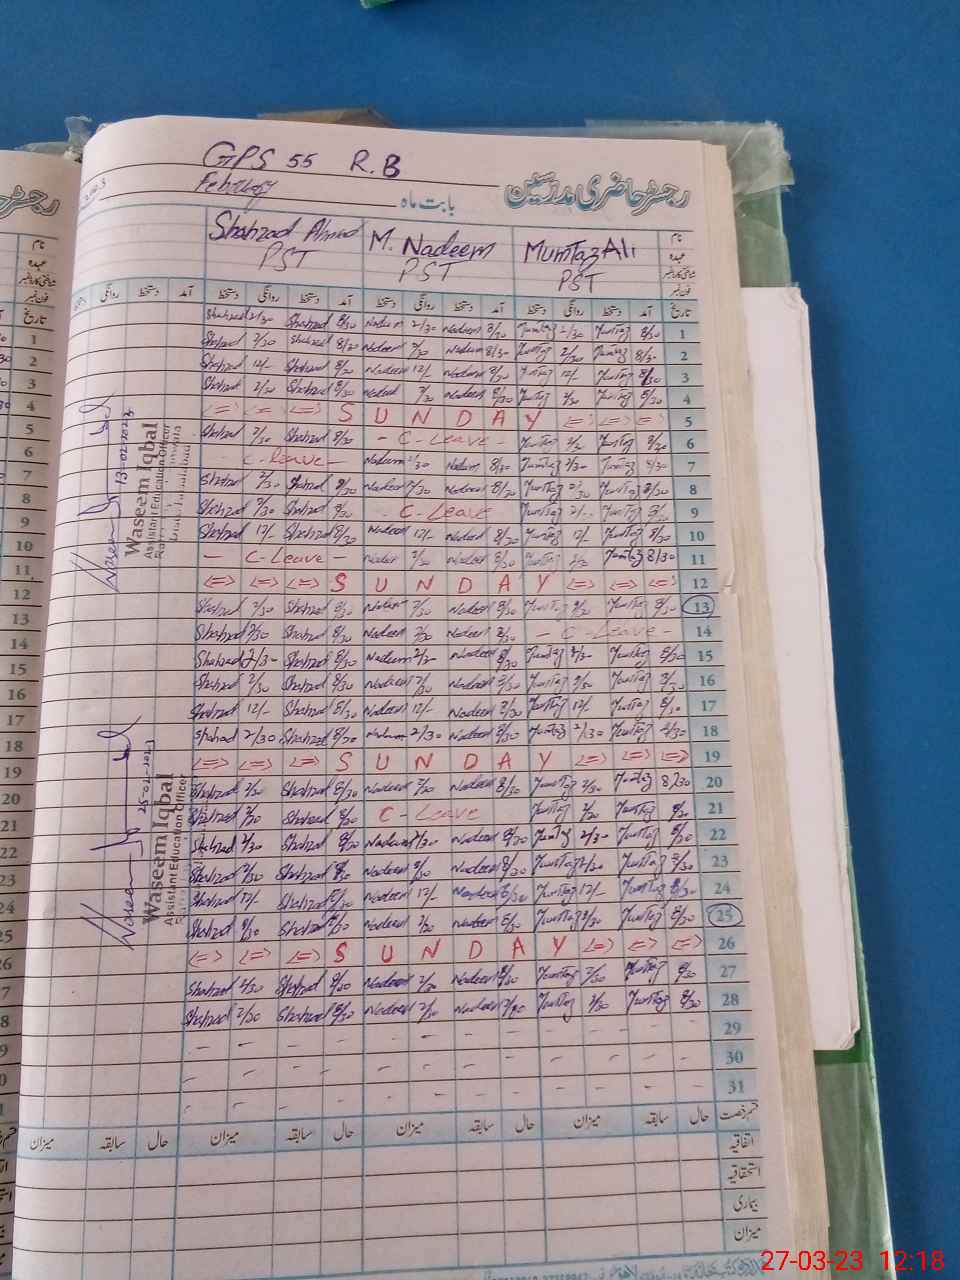 GPS 55 R.B
February
رجسٹر حاضری مدرسین
بابت ماہ
Shahzad Ahmad M. Nadeem Mumtaz Ali نام
PST PST PST عہدہ
فون نمبر
روانگی دستخط آمد دستخط روانگی دستخط آمد دستخط روانگی دستخط آمد دستخط روانگی دستخط آمد تاریخ
Shahzad 2/30 Shahzad 8/30 Nadeem 2/30 Nadeem 8/30 Mumtaz 2/30 Mumtaz 8/30 1
Shahzad 2/30 Shahzad 8/30 Nadeem 2/30 Nadeem 8/30 Mumtaz 2/30 Mumtaz 8/30 2
Shahzad 12/- Shahzad 8/30 Nadeem 12/- Nadeem 8/30 Mumtaz 12/- Mumtaz 8/30 3
Shahzad 2/30 Shahzad 8/30 Nadeem 2/30 Nadeem 8/30 Mumtaz 2/30 Mumtaz 8/30 4
SUNDAY 5
Shahzad 2/30 Shahzad 8/30 - C-Leave - Mumtaz 2/30 Mumtaz 8/30 6
- C-Leave - Nadeem 2/30 Nadeem 8/30 Mumtaz 2/30 Mumtaz 8/30 7
Shahzad 2/30 Shahzad 8/30 Nadeem 2/30 Nadeem 8/30 Mumtaz 2/30 Mumtaz 8/30 8
Shahzad 2/30 Shahzad 8/30 C-Leave Mumtaz Mumtaz 8/30 9
Shahzad 12/- Shahzad 8/30 Nadeem 12/- Nadeem 8/30 Mumtaz 12/- Mumtaz 8/30 10
- C-Leave - Nadeem 2/30 Nadeem 8/30 Mumtaz 2/30 Mumtaz 8/30 11
SUNDAY 12
Shahzad 2/30 Shahzad 8/30 Nadeem 2/30 Nadeem 8/30 Mumtaz 2/30 Mumtaz 8/30 13
Shahzad 2/30 Shahzad 8/30 Nadeem 2/30 Nadeem 8/30 - C-Leave - 14
Shahzad 2/30 Shahzad 8/30 Nadeem 2/30 Nadeem 8/30 Mumtaz 2/30 Mumtaz 8/30 15
Shahzad 2/30 Shahzad 8/30 Nadeem 2/30 Nadeem 8/30 Mumtaz 2/30 Mumtaz 8/30 16
Shahzad 12/- Shahzad 8/30 Nadeem 12/- Nadeem 8/30 Mumtaz 12/- Mumtaz 8/30 17
Shahzad 2/30 Shahzad 8/30 Nadeem 2/30 Nadeem 8/30 Mumtaz 2/30 Mumtaz 8/30 18
SUNDAY 19
Shahzad 2/30 Shahzad 8/30 Nadeem 2/30 Nadeem 8/30 Mumtaz 2/30 Mumtaz 8/30 20
Shahzad 2/30 Shahzad 8/30 C-Leave Mumtaz 2/30 Mumtaz 8/30 21
Shahzad 2/30 Shahzad 8/30 Nadeem 2/30 Nadeem 8/30 Mumtaz 2/30 Mumtaz 8/30 22
Shahzad 2/30 Shahzad 8/30 Nadeem 2/30 Nadeem 8/30 Mumtaz 2/30 Mumtaz 8/30 23
Shahzad 12/- Shahzad 8/30 Nadeem 12/- Nadeem 8/30 Mumtaz 12/- Mumtaz 8/30 24
Shahzad 2/30 Shahzad 8/30 Nadeem 2/30 Nadeem 8/30 Mumtaz 2/30 Mumtaz 8/30 25
SUNDAY 26
Shahzad 2/30 Shahzad 8/30 Nadeem 2/30 Nadeem 8/30 Mumtaz 2/30 Mumtaz 8/30 27
Shahzad 2/30 Shahzad 8/30 Nadeem 2/30 Nadeem 8/30 Mumtaz 2/30 Mumtaz 8/30 28
29
30
31
میزان سابقہ حال میزان سابقہ حال میزان سابقہ حال میزان سابقہ حال قسم رخصت
اتفاقیہ
استحقاقیہ
بیماری
میزان
Waseem
13-02-2023
Waseem Iqbal
Assistant Education Officer
Waseem
25-02-2023
Waseem Iqbal
Assistant Education Officer
27-03-23 12:18